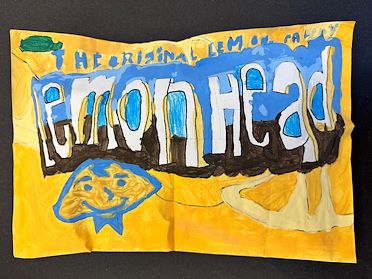 THE ORIGINAL LEMON CANDY
lemon Head